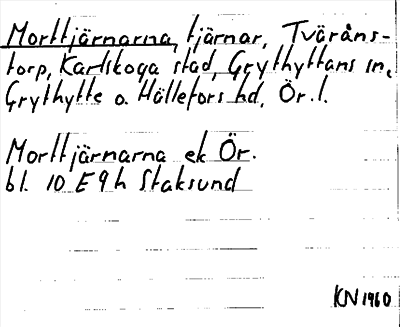 Morttjärnarna, tjärnar, Tväråns-
torp, Karlskoga stad, Grythyttans sn,
Grythytte o. Hällefors hd, Ör. l.
Morttjärnarna ek Ör.
bl. 10 E 9 h Staksund
KN 1960